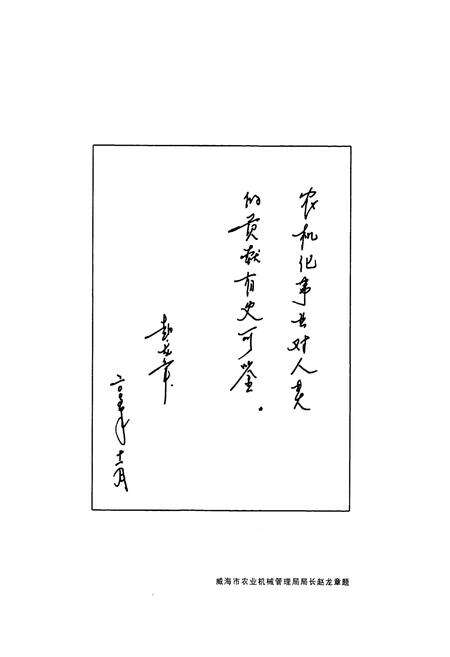 农机化事业对人类
的贡献有史可鉴。
赵龙章
二〇〇五年
威海市农业机械管理局局长赵龙章题